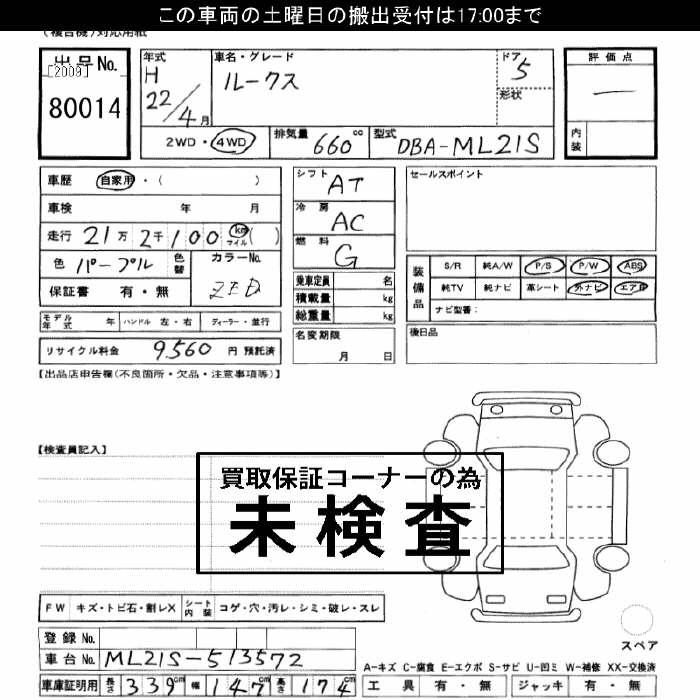 この車両の土曜日の搬出受付は17:00まで
(複合機)対応用紙
出品No.
[2009]
80014
年式
H
22/4月
車名・グレード
ルークス
ドア
5
形状
評価点
―
内装
2WD・4WD
排気量
660cc
型式
DBA-ML21S
車歴 自家用・( )
車検 年 月
走行 21万2千100 km マイル ( )
色 パープル 色替
カラーNo.
ZED
保証書 有・無
モデル年式 年 ハンドル 左・右 ディーラー・並行
リサイクル料金 9,560 円 預託済
シフト
AT
冷房
AC
燃料
G
乗車定員 名
積載量 kg
総重量 kg
名変期限
月 日
セールスポイント
装備品
S/R 純A/W P/S P/W ABS
純TV 純ナビ 革シート 外ナビ エアB
ナビ型番:
後日品
【出品店申告欄(不良箇所・欠品・注意事項等)】
【検査員記入】
買取保証コーナーの為
未検査
FW キズ・トビ石・割レX シート内装 コゲ・穴・汚レ・シミ・破レ・スレ
登録No.
車台No. ML21S-513572
車庫証明用 長さ 339cm 幅 147cm 高さ 174cm
スペア
A-キズ C-腐食 E-エクボ S-サビ U-凹ミ W-補修 XX-交換済
工具 有・無 ジャッキ 有・無